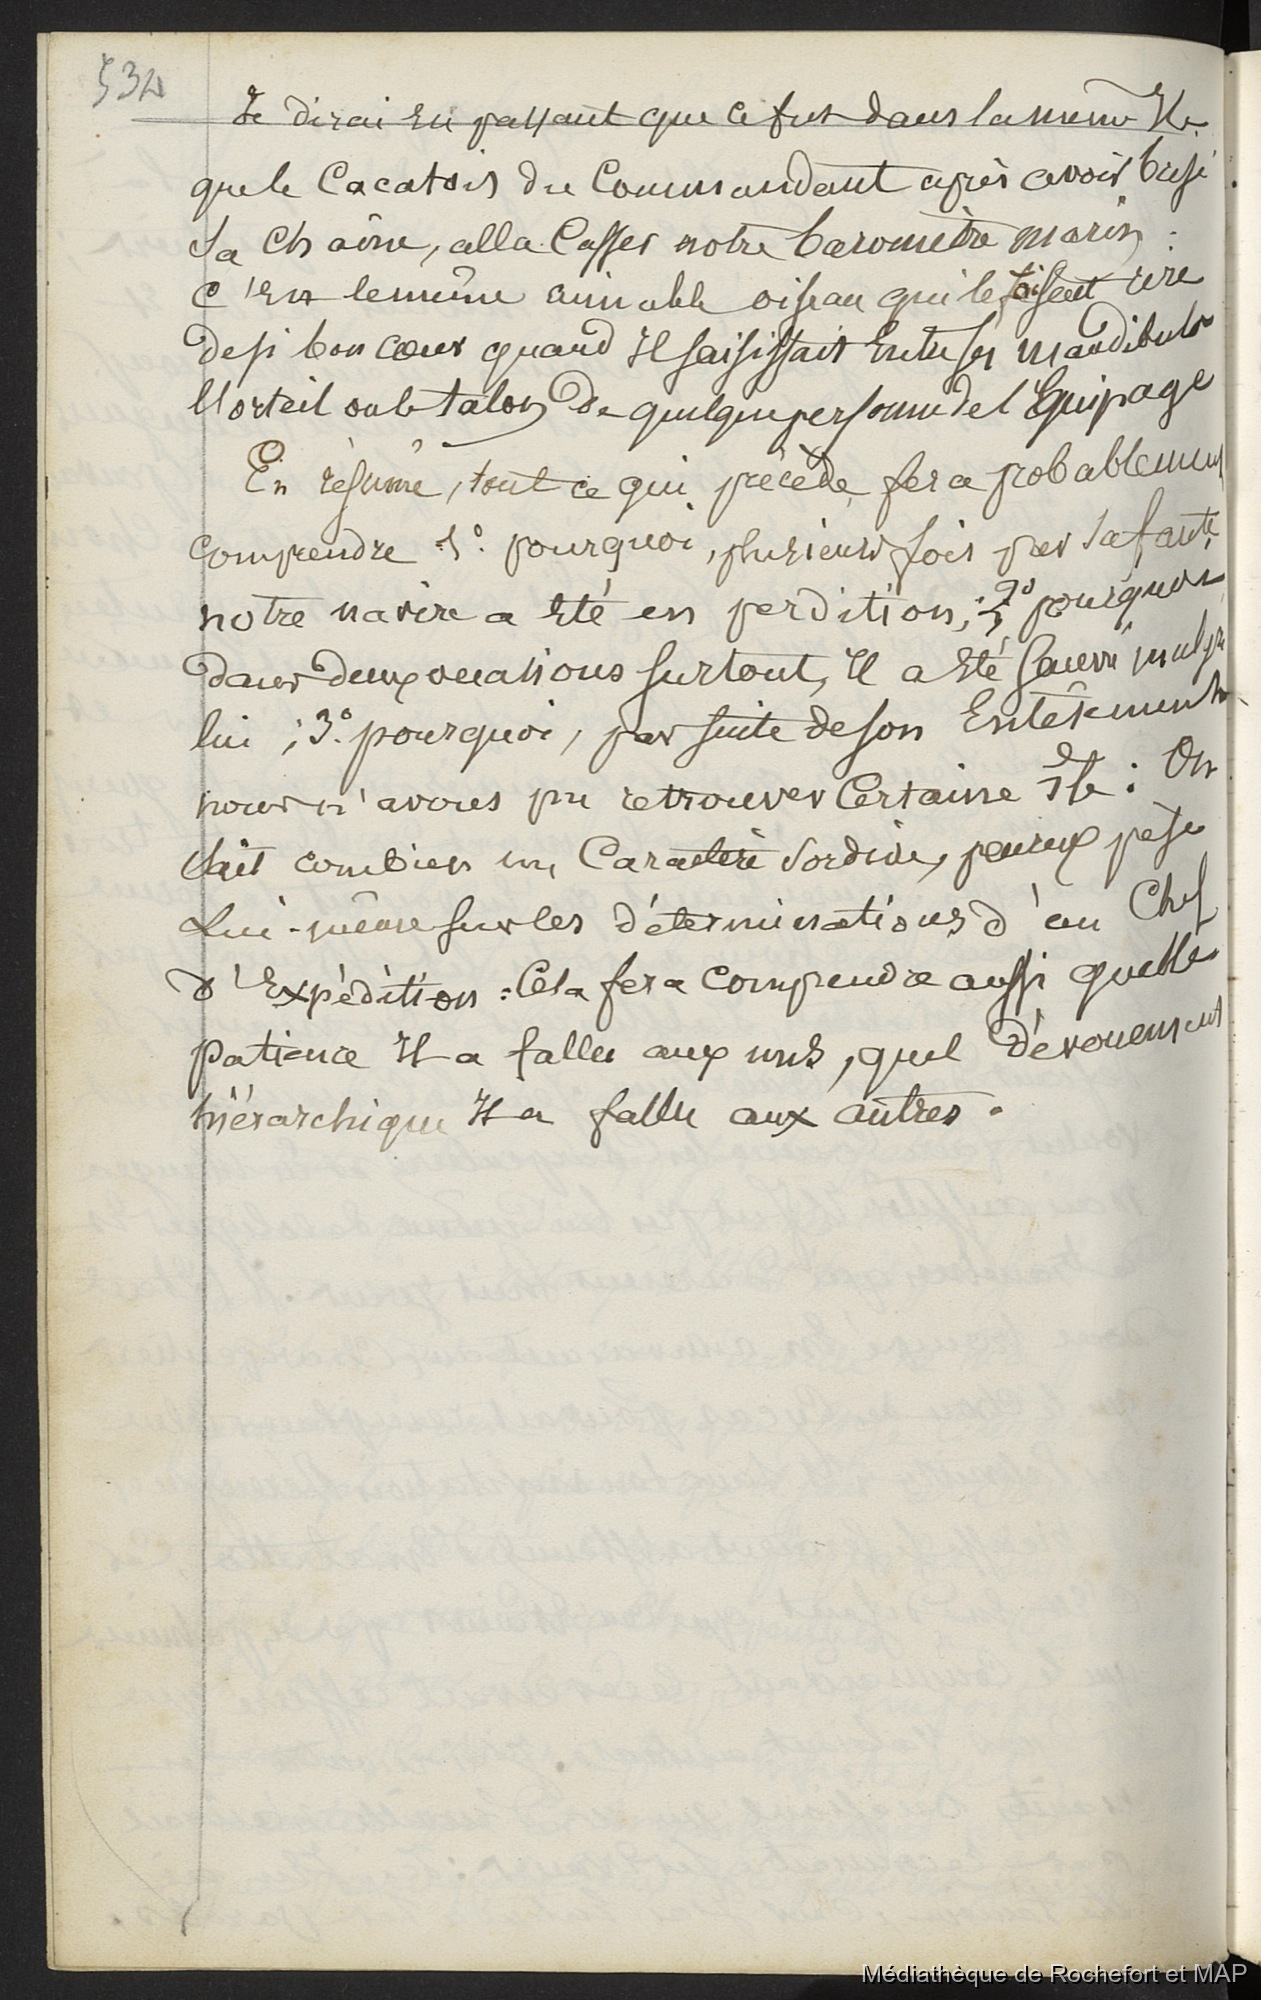 534
Je dirai en passant que ce fut dans la même Ile
que le Cacatois du Commandant après avoir brisé
Sa Chaîne, alla Casser notre baromètre marin :
C'est le même aimable oiseau qui le faisait rire
de si bon cœur quand Il saisissait Entre ses mandibules
l'orteil ou le talon de quelque personne de l'Equipage
En résumé, tout ce qui précède, fera probablement
comprendre 1º. pourquoi, plusieurs fois par sa faute,
notre navire a Eté en perdition, ; 2º pourquoi
dans deux occasions surtout, Il a Eté Sauvé malgré
lui ; 3º. pourquoi, par suite de son Entêtement
nous n'avons pu retrouver Certaine Ile : On
Sait combien un Caractère Sordide, peureux pèse
Lui-même sur les déterminations d'un Chef
d'Expédition : Cela fera comprendre aussi quelle
patience Il a fallu aux uns, quel dévouement
hiérarchique Il a fallu aux autres.
Médiathèque de Rochefort et MAP